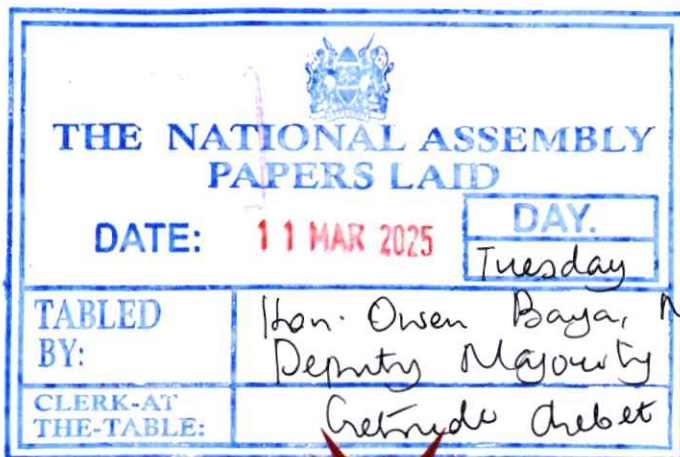 THE NATIONAL ASSEMBLY
PAPERS LAID
DATE: 11 MAR 2025
DAY.
Tuesday
TABLED BY:
Hon. Owen Baya,
Deputy Majority
CLERK-AT THE-TABLE:
Chebet